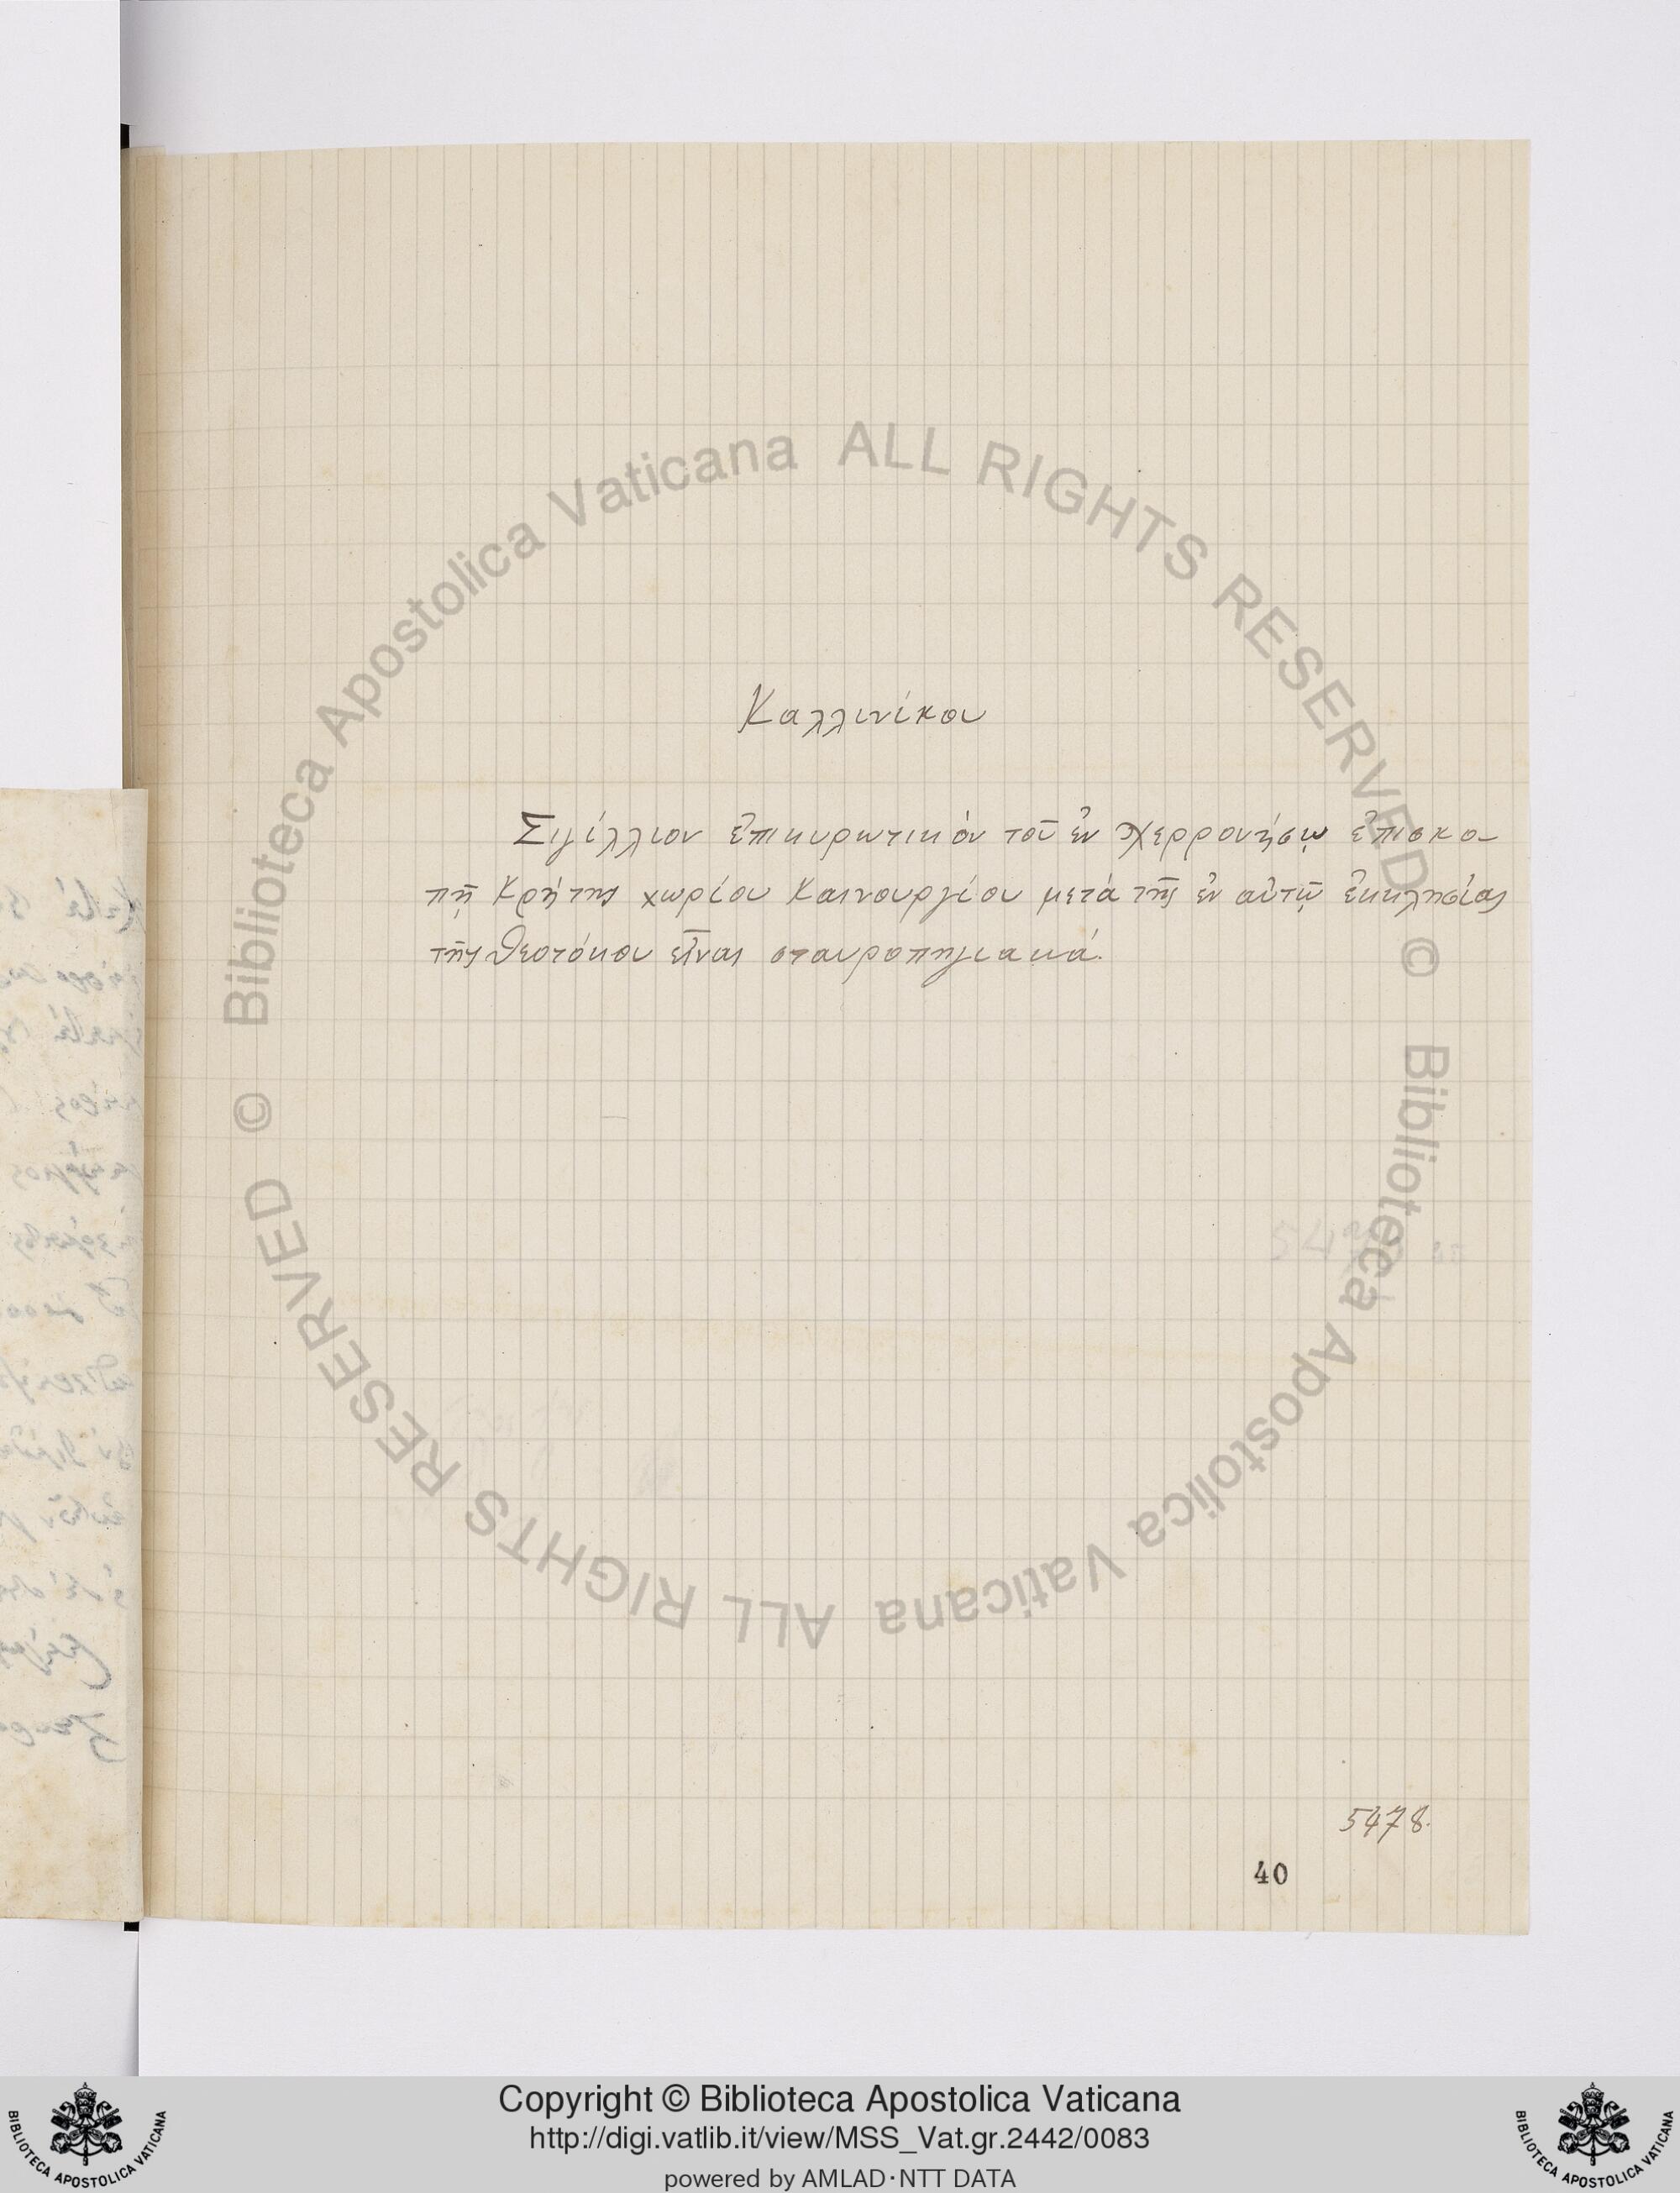 Καλλινίκου
Σιγίλλιον ἐπικυρωτικὸν τοῦ ἐν Χερρονήσῳ ἐπισκο-
πῇ Κρήτης χωρίου Καινουργίου μετὰ τῆς ἐν αὐτῷ ἐκκλησίας
τῆς Θεοτόκου εἶναι σταυροπηγιακά.
5478.
40
© Biblioteca Apostolica Vaticana ALL RIGHTS RESERVED
© Biblioteca Apostolica Vaticana ALL RIGHTS RESERVED
Copyright © Biblioteca Apostolica Vaticana
http://digi.vatlib.it/view/MSS_Vat.gr.2442/0083
powered by AMLAD·NTT DATA
BIBLIOTECA APOSTOLICA VATICANA
BIBLIOTECA APOSTOLICA VATICANA